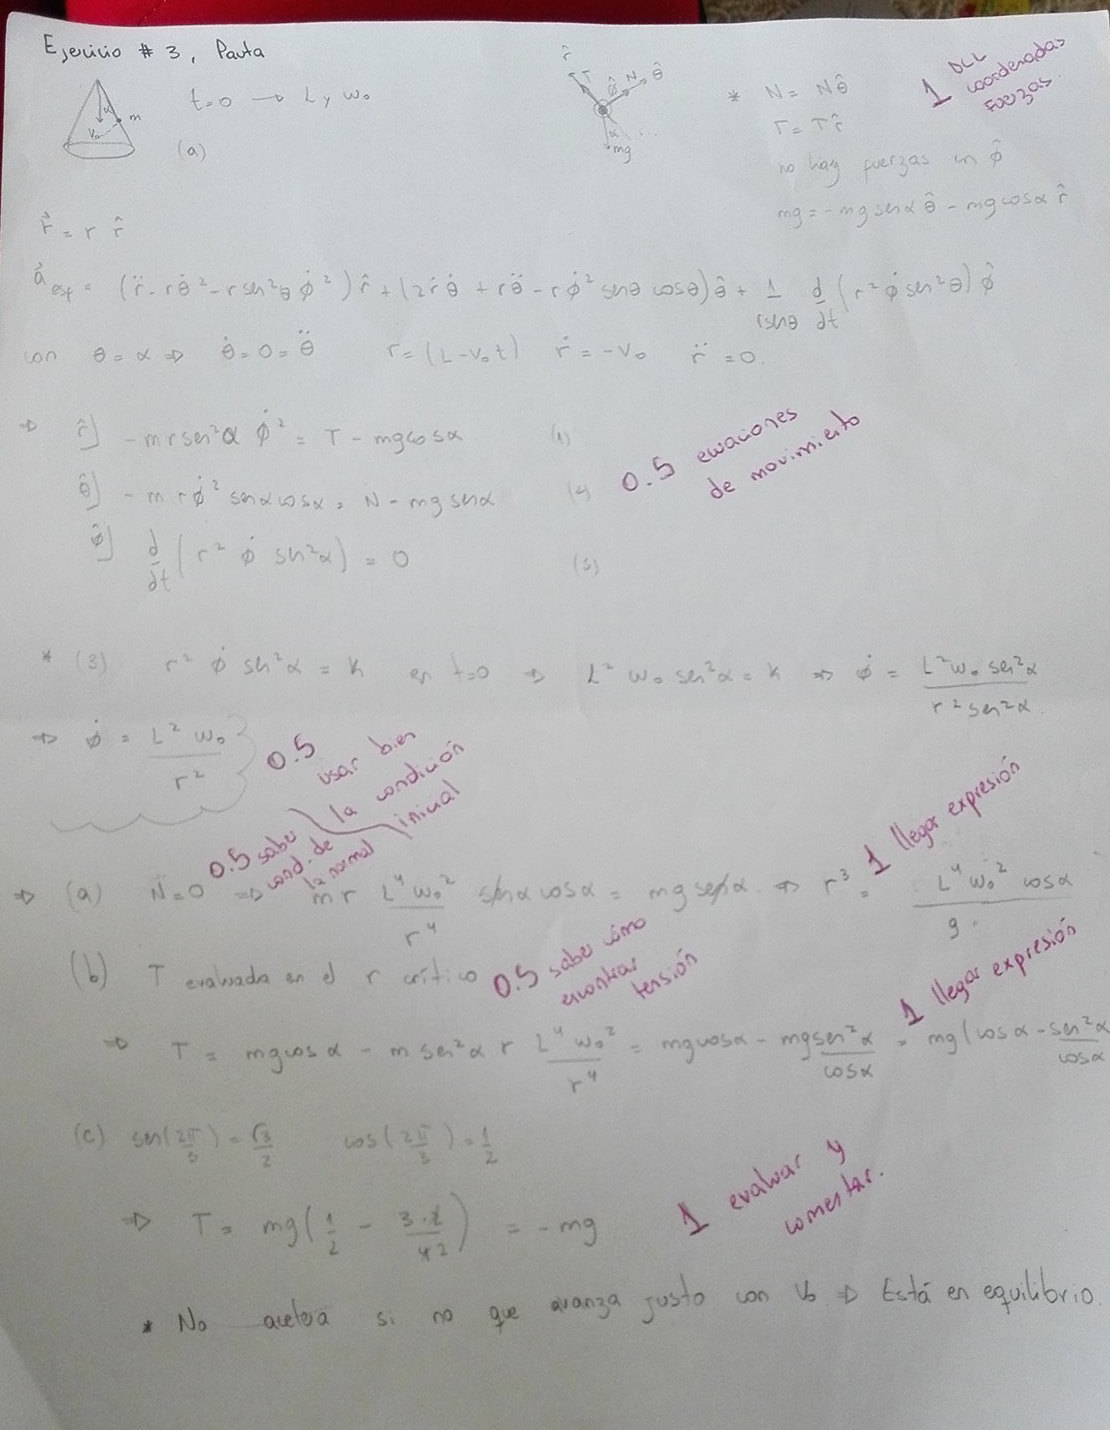 Ejercicio # 3, Pauta
t=0 → L y ω₀
m
V₀
(a)
r̂
T
φ̂ N θ̂
α
mg
* N = N θ̂
T = T r̂
no hay fuerzas en φ̂
mg = -mg senα θ̂ - mg cosα r̂
1 DCL
coordenadas
Fuerzas
r⃗ = r r̂
a⃗ esf = (r̈ - rθ̇² - r sen²θ φ̇²) r̂ + (2ṙθ̇ + rθ̈ - rφ̇² senθ cosθ) θ̂ + 1/(r senθ) d/dt (r² φ̇ sen²θ) φ̂
con θ = α ⇒ θ̇ = 0 = θ̈ r = (L - V₀t) ṙ = -V₀ r̈ = 0.
⇒ r̂] - m r sen²α φ̇² = T - mg cosα (1)
θ̂] - m r φ̇² senα cosα = N - mg senα (2)
φ̂] d/dt (r² φ̇ sen²α) = 0 (3)
0.5 ecuaciones
de movimiento
* (3) r² φ̇ sen²α = k en t=0 ⇒ L² ω₀ sen²α = k ⇒ φ̇ = L² ω₀ sen²α / r² sen²α.
⇒ φ̇ = L² ω₀ / r²
0.5 usar bien
la condición
inicial
0.5 saber
cond. de
la normal
⇒ (a) N = 0 ⇒ m r L⁴ω₀²/r⁴ senα cosα = mg senα ⇒ r³ = L⁴ ω₀² cosα / g.
1 llegar expresión
(b) T evaluada en el r crítico
0.5 saber cómo
encontrar
tensión
⇒ T = mg cosα - m sen²α r L⁴ω₀²/r⁴ = mg cosα - mg sen²α/cosα = mg (cosα - sen²α/cosα
1 llegar expresión
(c) sen(2π/3) = √3/2 cos(2π/3) = 1/2
⇒ T = mg (1/2 - 3·2/4 2) = -mg
1 evaluar y
comentar.
* No acelera si no que avanza justo con V₀ ⇒ Está en equilibrio.